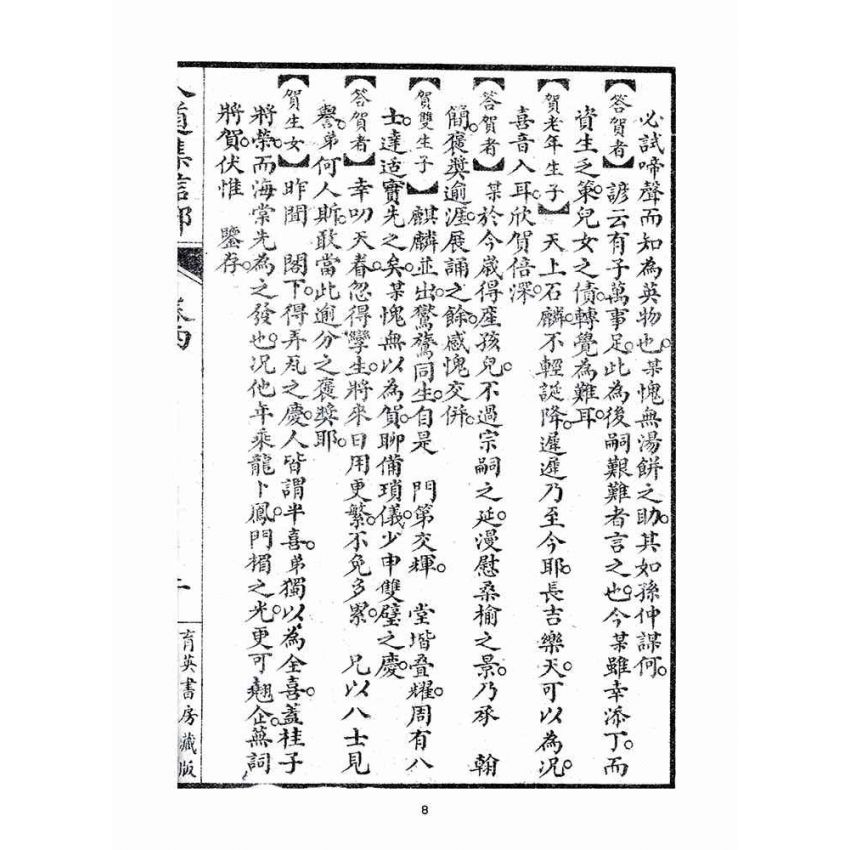 必試啼聲而知為英物也。某愧無湯餅之助。其如孫仲謀何。
【答賀者】諺云有子萬事足。此為後嗣艱難者言之也。今某雖幸添丁。而
資生乏策。兒女之債。轉覺為難耳。
【賀老年生子】天上石麟。不輕誕降。遲遲乃至今耶。長吉樂天。可以為況。
喜音入耳。欣賀倍深。
【答賀者】某於今歲得產孩兒。不過宗嗣之延。漫慰桑榆之景。乃承 翰
簡。褒獎逾涯。展誦之餘。感愧交併。
【賀雙生子】麒麟並出。鸑鷟同生。自是 門第交輝。 堂堦叠耀。周有八
士。達适實先之矣。某愧無以為賀。聊備瑣儀。少申雙璧之慶。
【答賀者】幸叨天眷。忽得孿生。將來日用更繁。不免多累。 兄以八士見
譽。弟何人斯。敢當此逾分之褒獎耶。
【賀生女】昨聞 閣下得弄瓦之慶。人皆謂半喜。弟獨以為全喜。蓋桂子
將榮。而海棠先為之發也。況他年乘龍卜鳳。門楣之光。更可翹企。蕪詞
將賀。伏惟 鑒存。
集信部
卷四
育英書房藏版
8